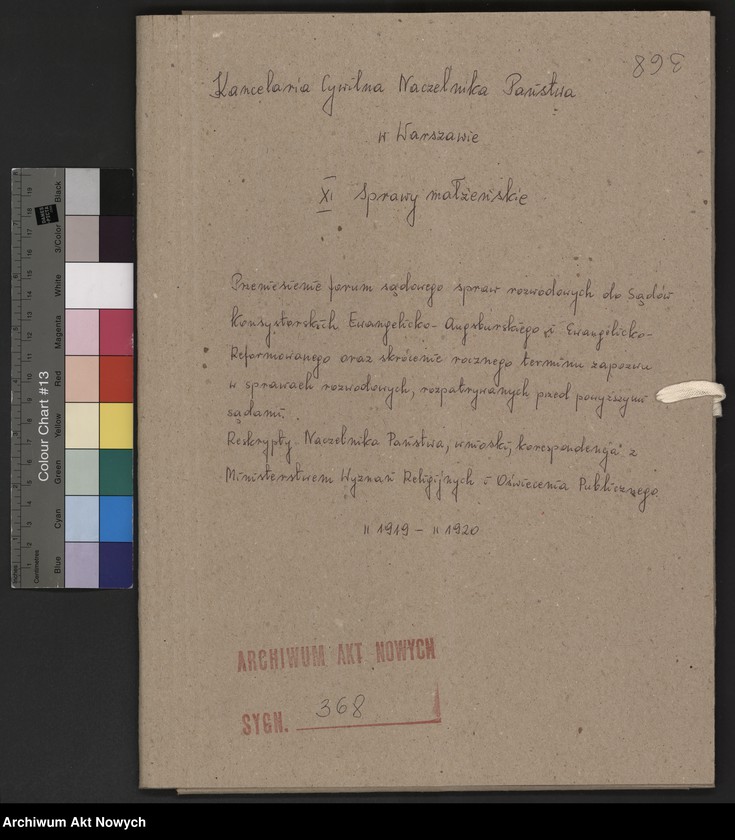 368
Kancelaria Cywilna Naczelnika Państwa
w Warszawie
XI sprawy małżeńskie
Przeniesienie forum sądowego spraw rozwodowych do Sądów
Konsystorskich Ewangelicko-Augsburskiego i Ewangelicko-
Reformowanego oraz skrócenie rocznego terminu zapozwu
w sprawach rozwodowych, rozpatrywanych przed powyższymi
sądami.
Reskrypty Naczelnika Państwa, wnioski, korespondencja z
Ministerstwem Wyznań Religijnych i Oświecenia Publicznego.
II 1919 – II 1920
ARCHIWUM AKT NOWYCH
SYGN. 368
Colour Chart #13
Black
3/Color
White
Magenta
Red
Yellow
Green
Cyan
Blue
Centimetres
Inches
Archiwum Akt Nowych